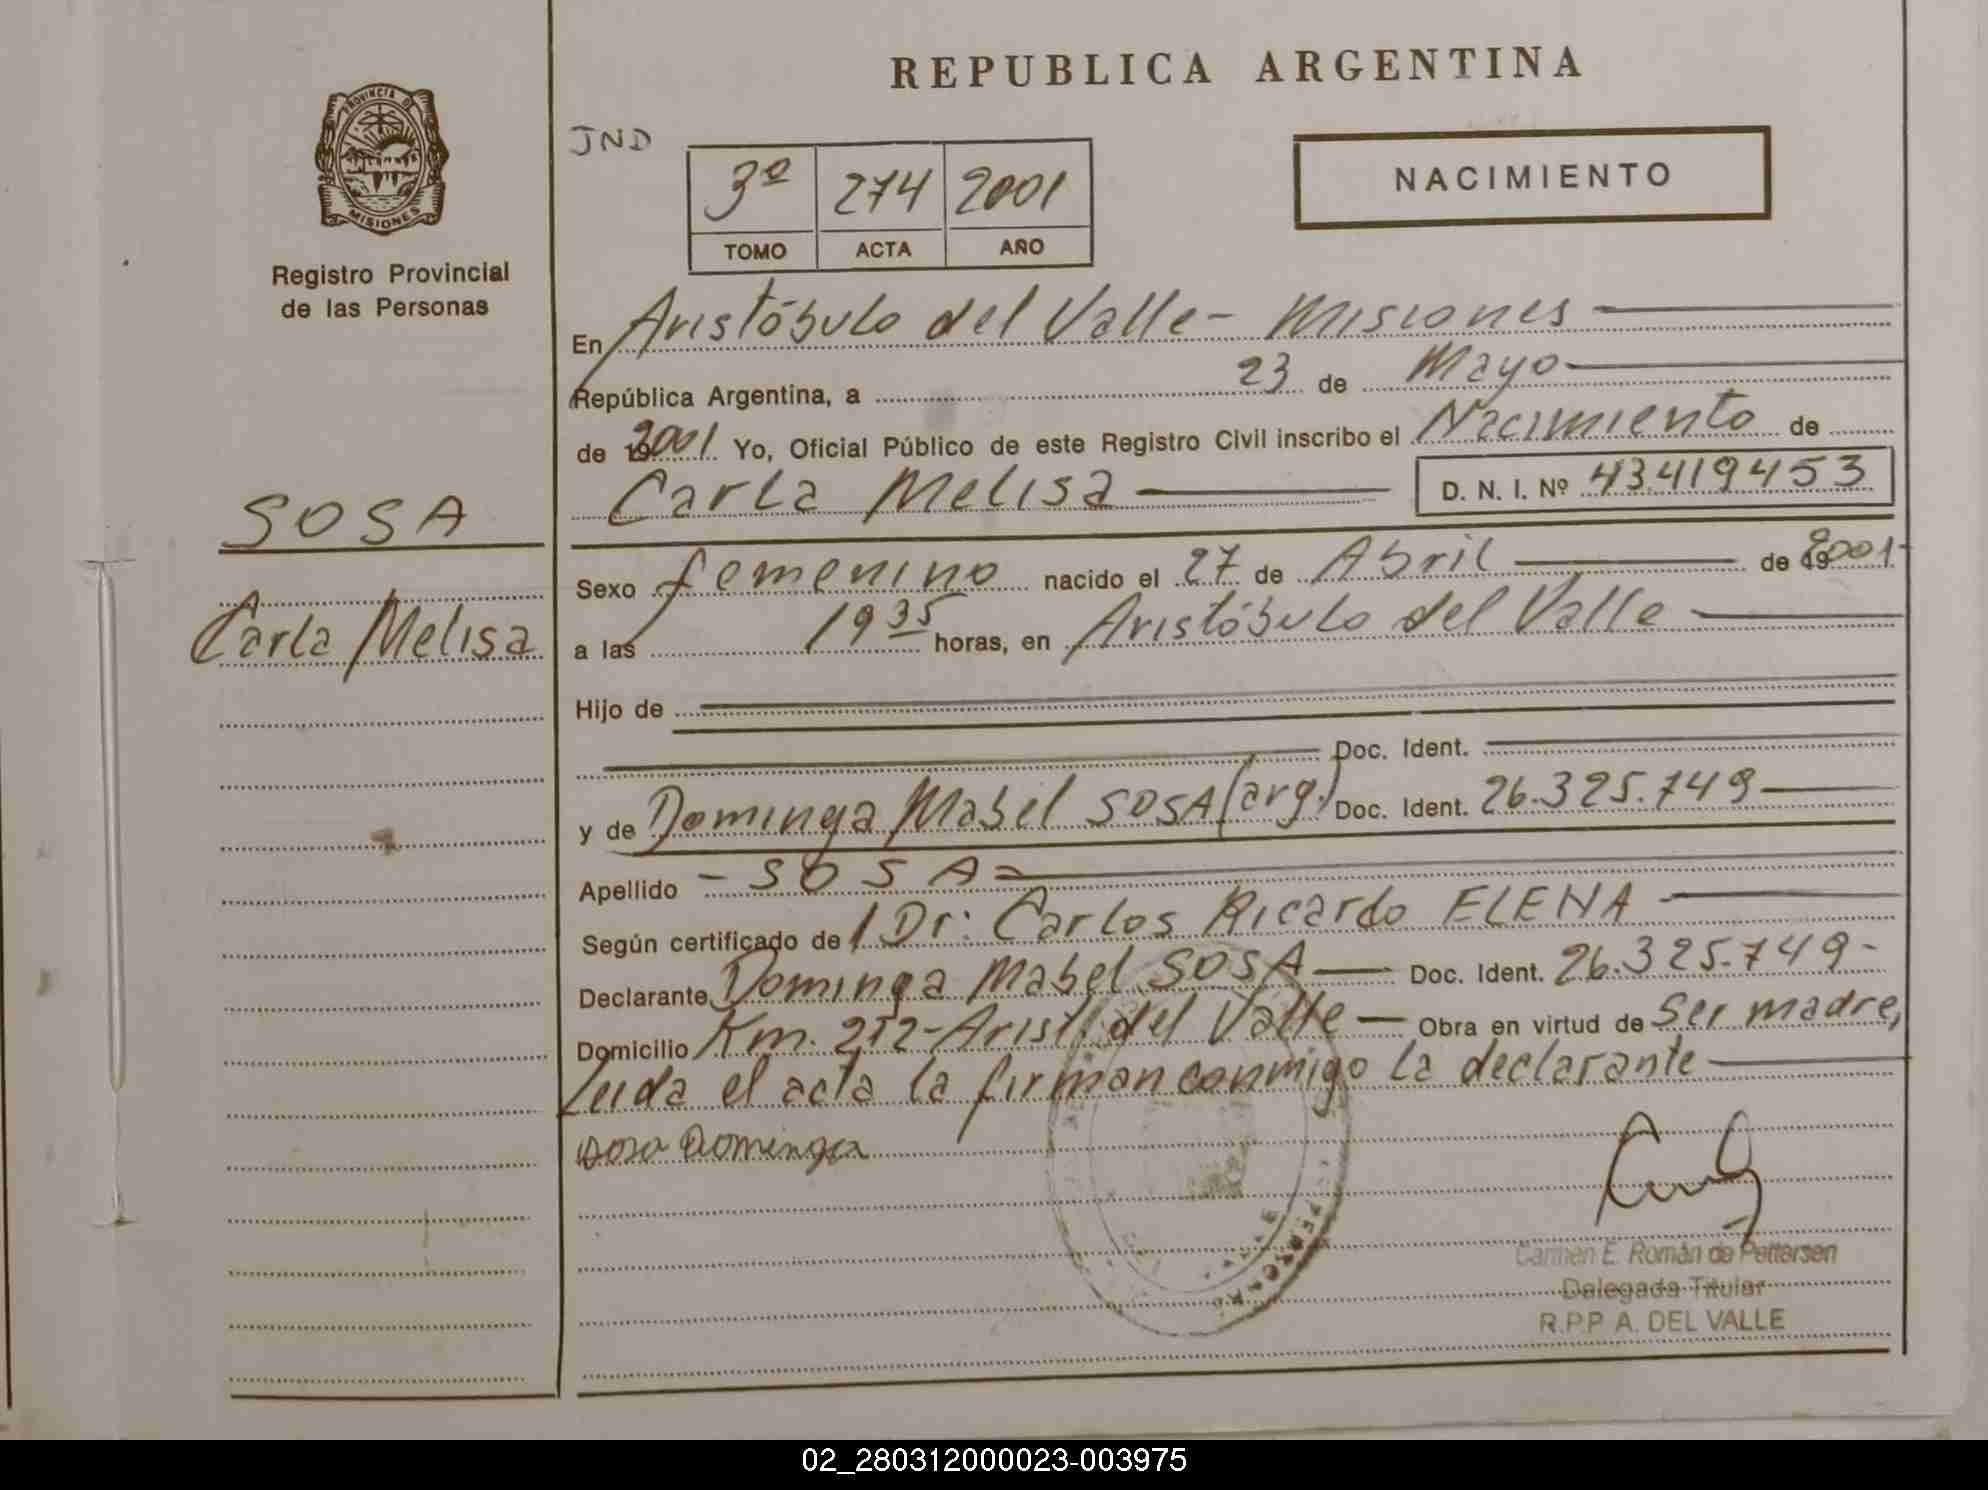 REPUBLICA ARGENTINA
PROVINCIA DE
MISIONES
Registro Provincial
de las Personas
JND
3º 274 2001
TOMO ACTA AÑO
NACIMIENTO
En Aristóbulo del Valle - Misiones
República Argentina, a 23 de Mayo
de 2001 Yo, Oficial Público de este Registro Civil inscribo el Nacimiento de
Carla Melisa D. N. I. Nº 43.419453
SOSA
Carla Melisa
Sexo femenino nacido el 27 de Abril de 2001-
a las 19 35 horas, en Aristóbulo del Valle
Hijo de
Doc. Ident.
y de Dominga Mabel SOSA (arg.) Doc. Ident. 26.325.749
Apellido - SOSA -
Según certificado de Dr: Carlos Ricardo ELENA
Declarante Dominga Mabel SOSA Doc. Ident. 26.325.749-
Domicilio Km. 212 - Arist. del Valle - Obra en virtud de Ser madre,
Leida el acta la firman conmigo la declarante
Sosa Dominga
Carmen E. Román de Pettersen
Delegada Titular
R.P.P A. DEL VALLE
02_280312000023-003975